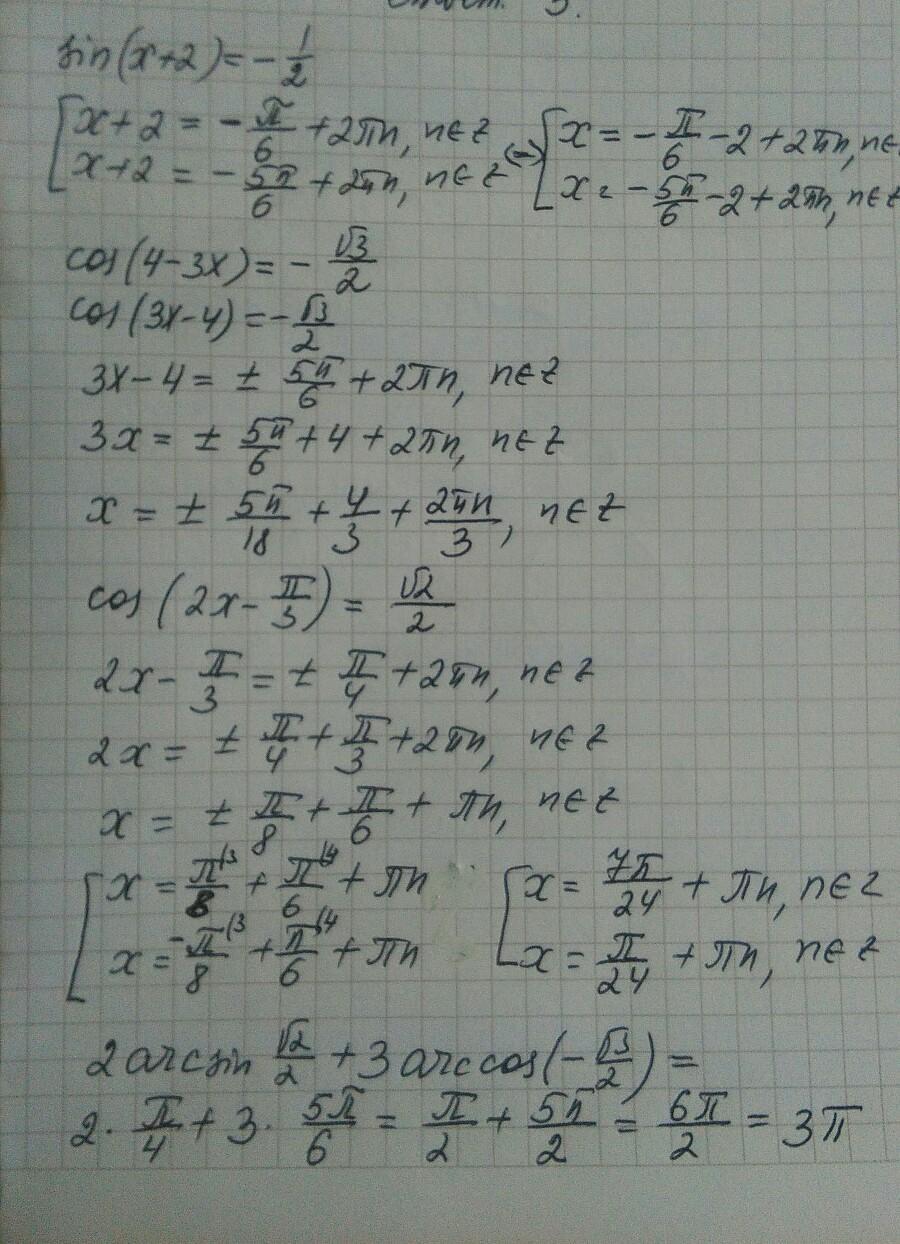 Ответ: 3.
sin(x+2) = - 1/2
[ x+2 = - π/6 + 2πn, n∈Z
x+2 = - 5π/6 + 2πn, n∈Z <=> [ x = - π/6 - 2 + 2πn, n∈
x = - 5π/6 - 2 + 2πn, n∈Z
cos(4-3x) = - √3/2
cos(3x-4) = - √3/2
3x - 4 = ± 5π/6 + 2πn, n∈Z
3x = ± 5π/6 + 4 + 2πn, n∈Z
x = ± 5π/18 + 4/3 + 2πn/3, n∈Z
cos(2x - π/3) = √2/2
2x - π/3 = ± π/4 + 2πn, n∈Z
2x = ± π/4 + π/3 + 2πn, n∈Z
x = ± π/8 + π/6 + πn, n∈Z
[ x = π/8 (3 + π/6 (4 + πn [ x = 7π/24 + πn, n∈Z
x = - π/8 (3 + π/6 (4 + πn x = π/24 + πn, n∈Z
2 arcsin √2/2 + 3 arccos(- √3/2) =
2 · π/4 + 3 · 5π/6 = π/2 + 5π/2 = 6π/2 = 3π